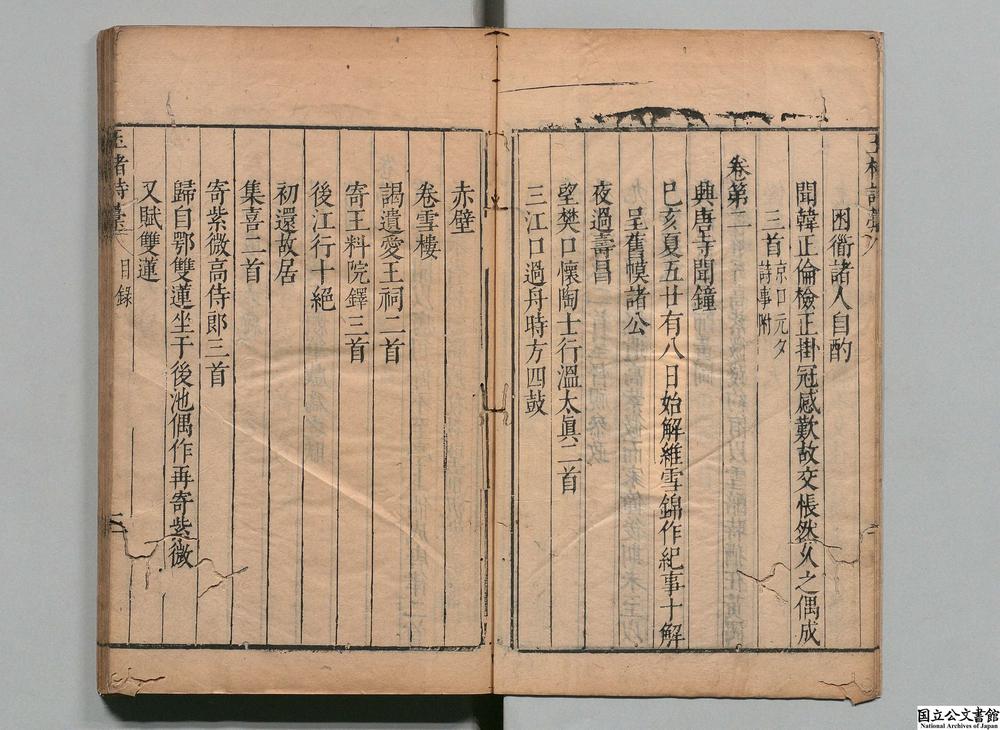 困衢諸人自酌
聞韓正倫檢正掛冠感歎故交悵然久之偶成
三首京口元夕詩事附
卷第二
興唐寺聞鐘
己亥夏五廿有八日始解維雪錦作紀事十解
呈舊幙諸公
夜過壽昌
望樊口懷陶士行溫太眞二首
三江口過舟時方四鼓
赤壁
卷雪樓
謁遺愛王祠二首
寄王料院鐸三首
後江行十絕
初還故居
集喜二首
寄紫微高侍郎三首
歸自鄂雙蓮坐于後池偶作再寄紫微
又賦雙蓮
玉楮詩藁 目錄 二
国立公文書館
National Archives of Japan